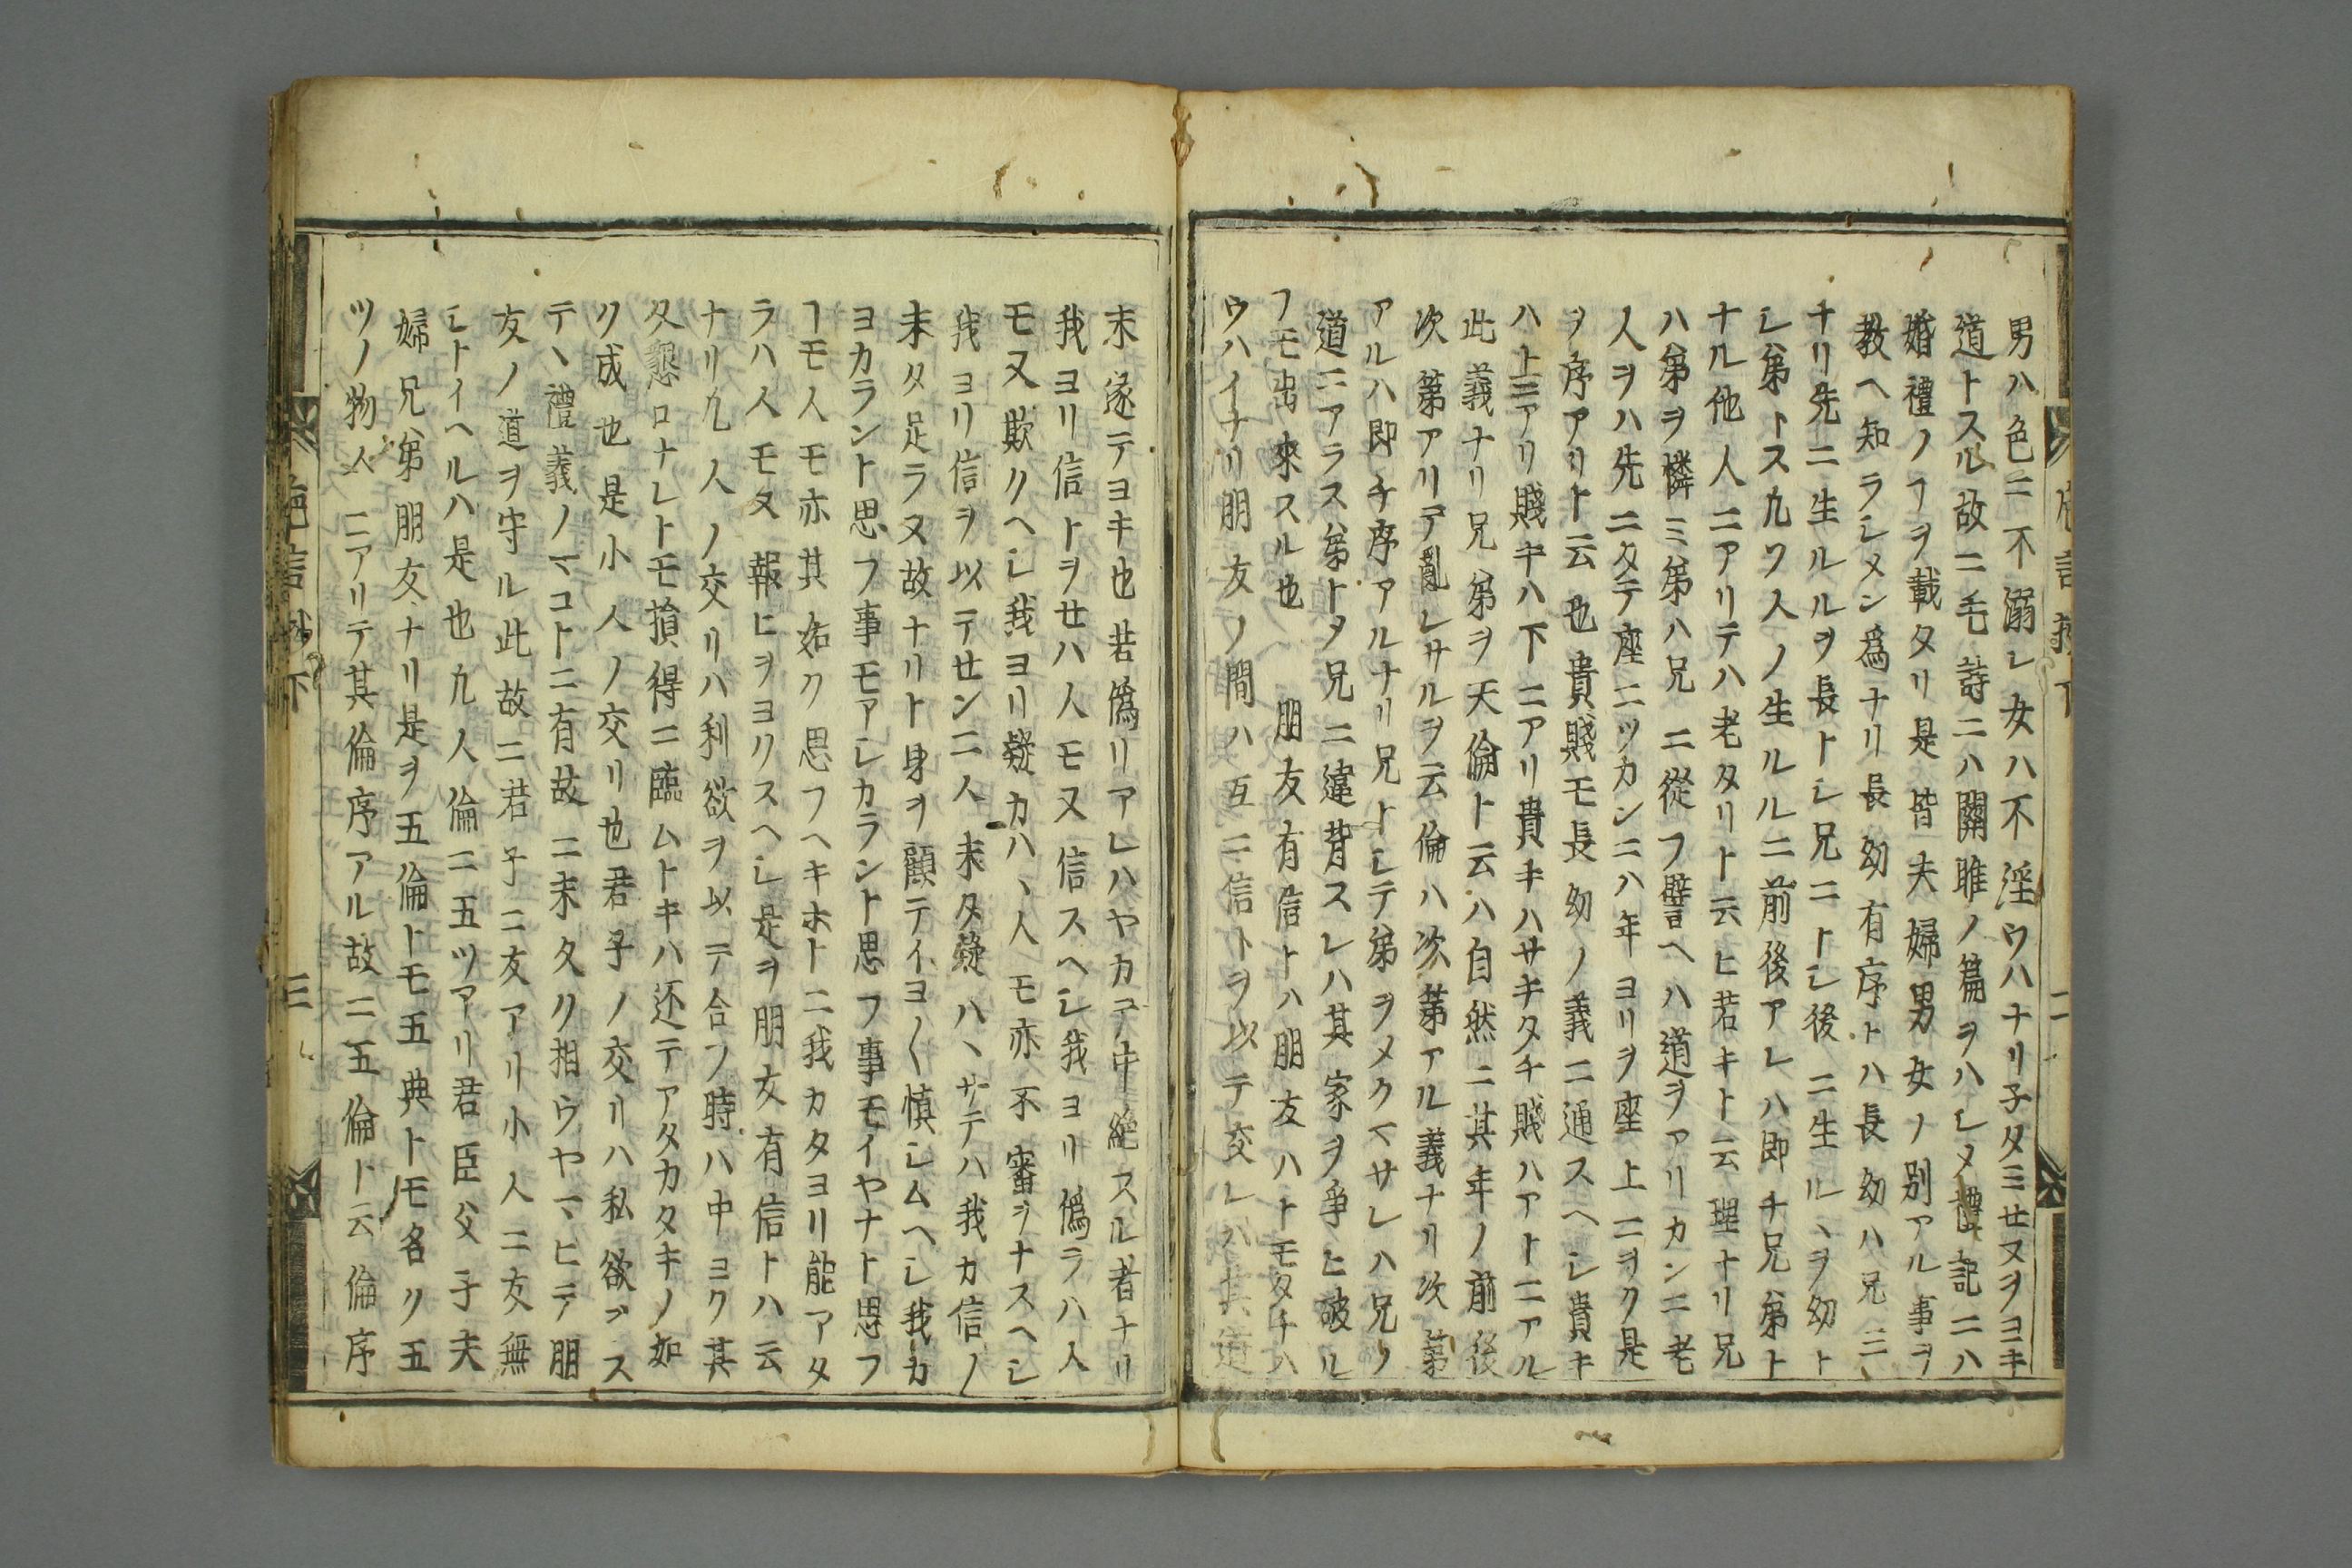 男ハ色ニ不溺レ女ハ不淫ウハナリ子タミセヌヲヨキ
道トスル故ニ毛詩ニハ關雎ノ篇ヲハシメ禮記ニハ
婚禮ノヿヲ載タリ是皆夫婦男女ノ別アル事ヲ
教ヘ知ラシメン爲ナリ長幼有序トハ長幼ハ兄ニ
チリ先ニ生ルルヲ長トシ兄ニトシ後ニ生ルヽヲ幼ト
シ第トス凢ソ人ノ生ルルニ前後アレハ即チ兄弟ト
ナル他人ニアリテハ老タリト云ヒ若キト云理ナリ兄
ハ第ヲ憐ミ第ハ兄ニ從フ譬ヘハ道ヲアリカンニ老
人ヲハ先ニタテ座ニツカンニハ年ヨリヲ座上ニヲク是
ヲ序アリト云也貴賤モ長幼ノ義ニ通スヘシ貴キ
ハ上ニアリ賤キハ下ニアリ貴キハサキタチ賤ハアトニアル
此義ナリ兄第ヲ天倫ト云ハ自然ニ其年ノ前後
次第アリテ亂レサルヲ云倫ハ次第アル義ナリ次第
アルハ即チ序アルナリ兄トシテ弟ヲメクマサレハ兄ノ
道ニアラス第トメ兄ニ違背スレハ其家ヲ爭ヒ破ル
ヿモ出來スル也 朋友有信トハ朋友ハトモタチハ
ウハイナリ朋友ノ間ハ互ニ信トヲ以テ交レハ其道
末遂テヨキ也若偽リアレハヤカテ中絶スル者ナリ
我ヨリ信トヲセハ人モ又信スヘシ我ヨリ偽ラハ人
モ又欺クヘシ我ヨリ疑カハヽ人モ亦不審ヲナスヘシ
我ヨリ信ヲ以テセンニ人未タ疑ハヽサテハ我カ信ノ
未タ足ラヌ故ナリト身ヲ顧テイヨ〱慎シムヘシ我カ
ヨカラント思フ事モアシカラント思フ事モイヤナト思フ
ヿモ人モ亦其如ク思フヘキホトニ我カタヨリ能アタ
ラハ人モ又報ヒヲヨクスヘシ是ヲ朋友有信トハ云
ナリ凢人ノ交リハ利欲ヲ以テ合フ時ハ中ヨク其
久懇ロナレトモ損得ニ臨ムトキハ还テアタカタキノ如
ク成也是小人ノ交リ也君子ノ交リハ私欲ヲス
テヽ禮義ノマコトニ有故ニ末久ク相ウヤマヒテ朋
友ノ道ヲ守ル此故ニ君子ニ友アリ小人ニ友無
シトイヘルハ是也凢人倫ニ五ツアリ君臣父子夫
婦兄弟朋友ナリ是ヲ五倫トモ五典トモ名ク五
ツノ物人ニアリテ其倫序アル故ニ五倫ト云倫序
三